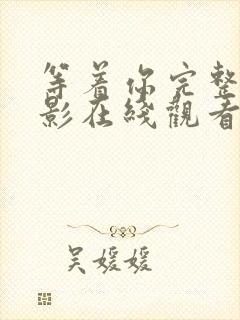 等着你完整
影在线觀看
吴媛媛